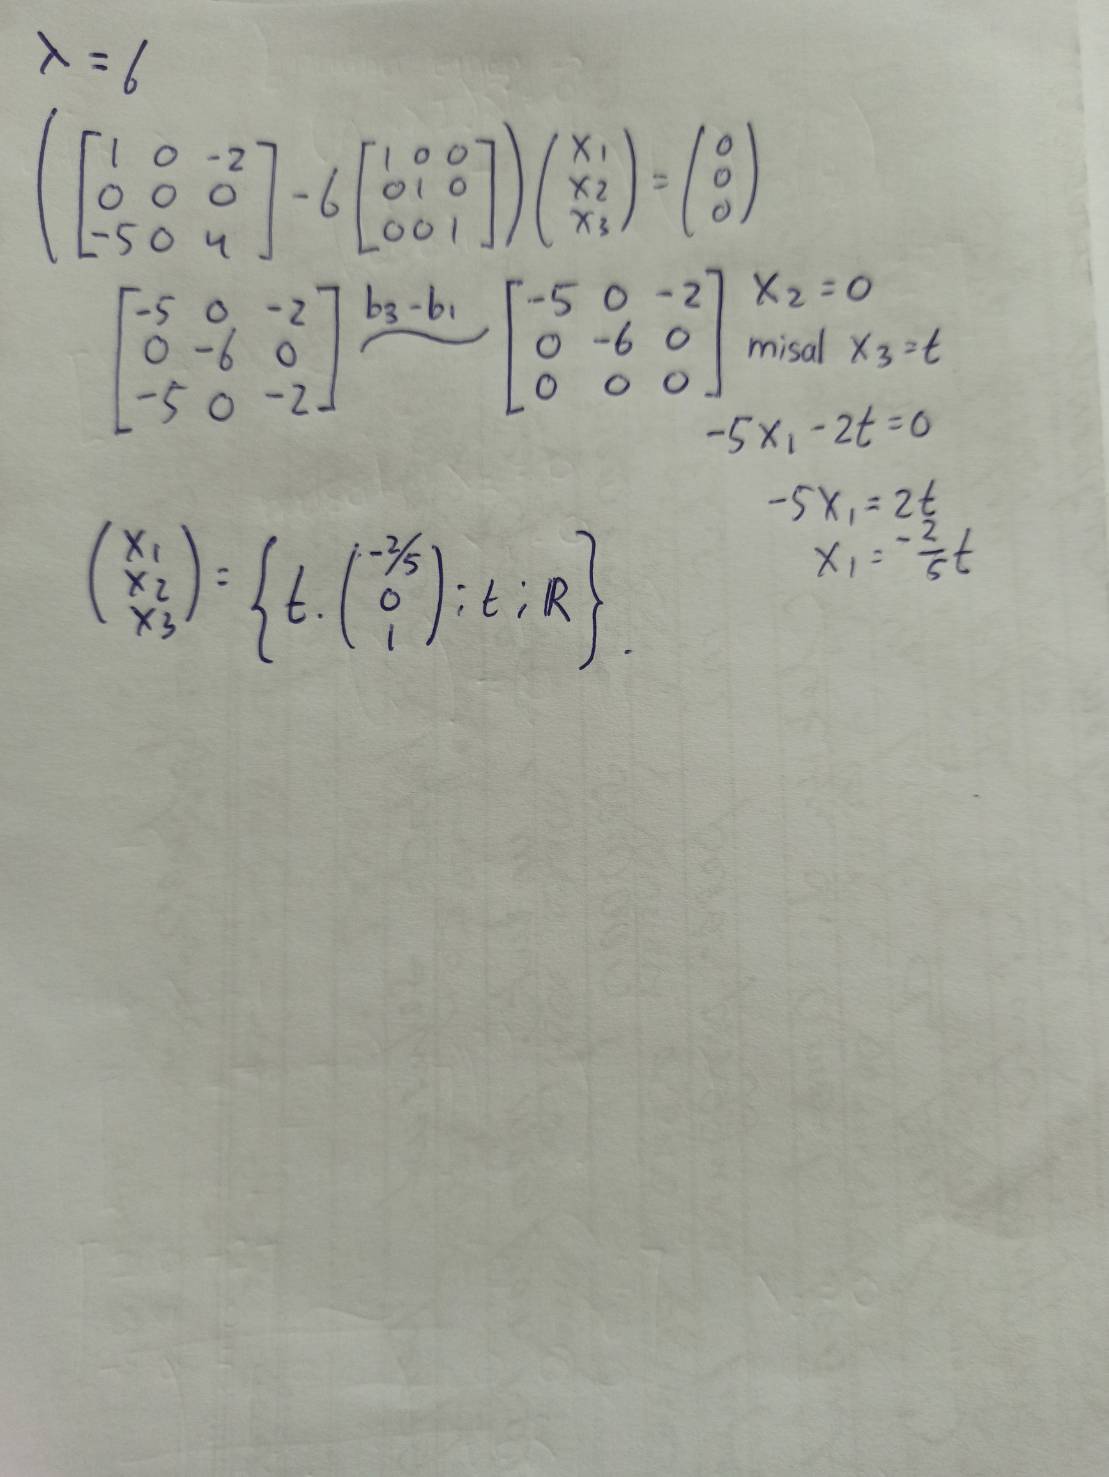 λ = 6
([1 0 -2; 0 0 0; -5 0 4] - 6 [1 0 0; 0 1 0; 0 0 1]) (x₁; x₂; x₃) = (0; 0; 0)
[-5 0 -2; 0 -6 0; -5 0 -2] b₃-b₁ [-5 0 -2; 0 -6 0; 0 0 0]
x₂ = 0
misal x₃ = t
-5x₁ - 2t = 0
-5x₁ = 2t
x₁ = -2/5 t
(x₁; x₂; x₃) = {t. (-2/5; 0; 1) ; t ; ℝ}.